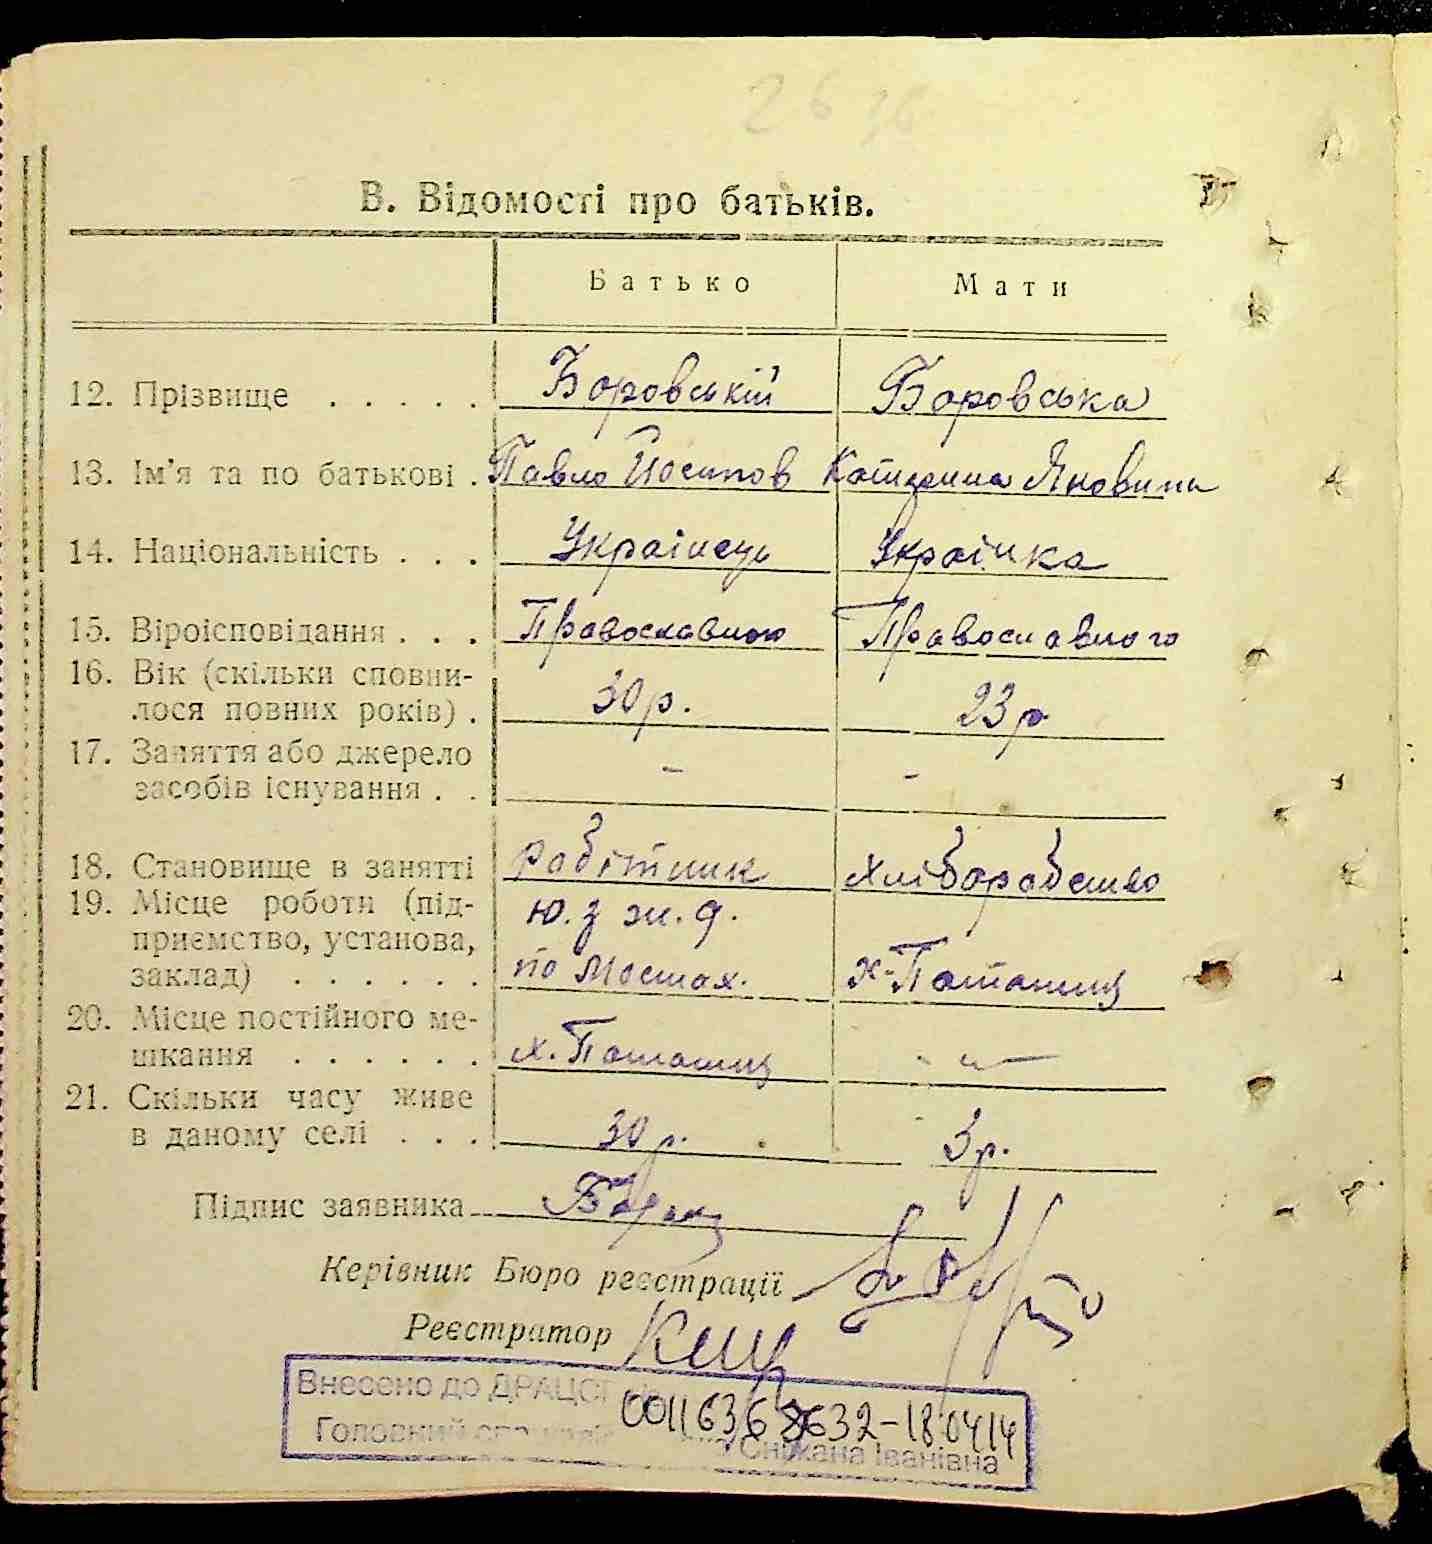 26 36
В. Відомості про батьків.
Батько Мати
12. Прізвище . . . . . Боровській Боровська
13. Ім'я та по батькові . Павло Йосипов Катерина Яновина
14. Національність . . . Українець Українка
15. Віроісповідання . . . Православною Православного
16. Вік (скільки сповни-
лося повних років) . 30 р. 23 р
17. Заняття або джерело
засобів існування . . – –
18. Становище в занятті робітник хліборобство
19. Місце роботи (під- ю. з ж. д.
приємство, установа,
заклад) . . . . . . по Мостах. х-Поташня
20. Місце постійного ме-
шкання . . . . . . х. Поташня -„-
21. Скільки часу живе
в даному селі . . . 30 р. 3 р.
Підпис заявника
Керівник Бюро реєстрації
Реєстратор
Внесено до ДРАЦСГ 00116368632-18.04.14
Головний Сніжана Іванівна